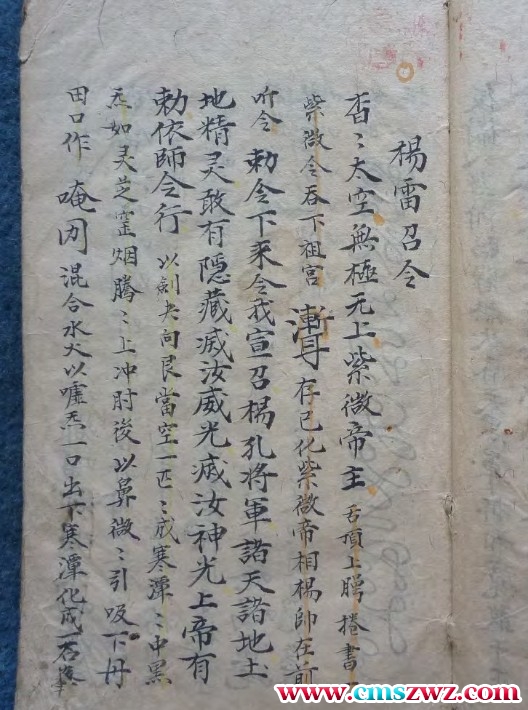 楊雷召令
杳〻太空無極无上紫微帝主 舌頂上腭捲書
紫微令吞下祖宮 存己化紫微帝相楊師在前
听令 勅令下来令我宣召楊孔將軍諸天諸地土
地精灵敢有隱藏滅汝威光滅汝神光上帝有
勅依師令行 以劍夬向艮當空一匹〻成寒潭〻中黑
炁如灵芝霊烟騰〻上冲肘後以鼻微〻引吸下丹
田口作 唵 混合水火以嘘炁一口出下寒潭化成一石
www.cmszwz.com